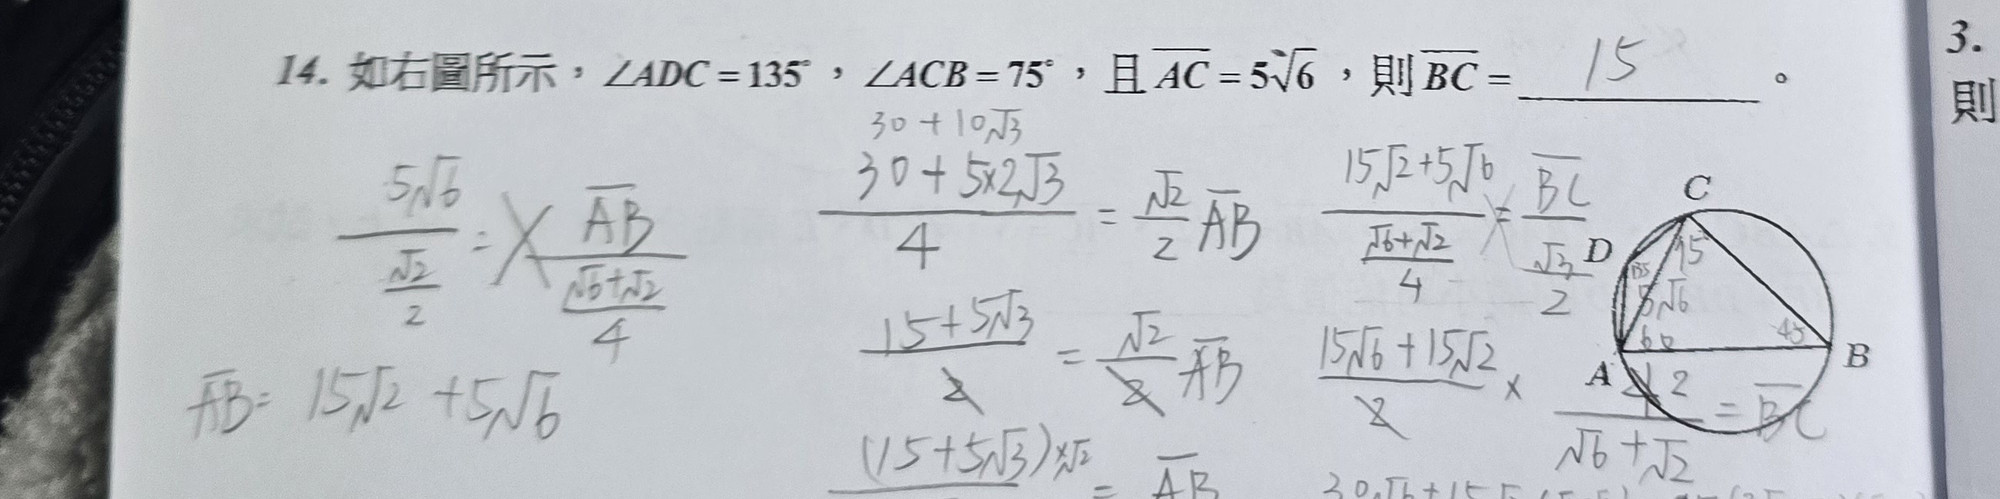 14. 如右圖所示，∠ADC = 135°，∠ACB = 75°，且 AC = 5√6，則 BC = 15 。
30 + 10√3
5√6 / (√2/2) = AB / ((√6+√2)/4)
AB = 15√2 + 5√6
(30 + 5×2√3) / 4 = √2/2 AB
(15 + 5√3) / 2 = √2/2 AB
(15 + 5√3)×√2
= AB
(15√2 + 5√6) / ((√6+√2)/4) = BC / (√3/2)
(15√6 + 15√2) / 2 × 4 2 / (√6+√2) = BC
C
D
A
B
135
75
5√6
60
45
3.
則